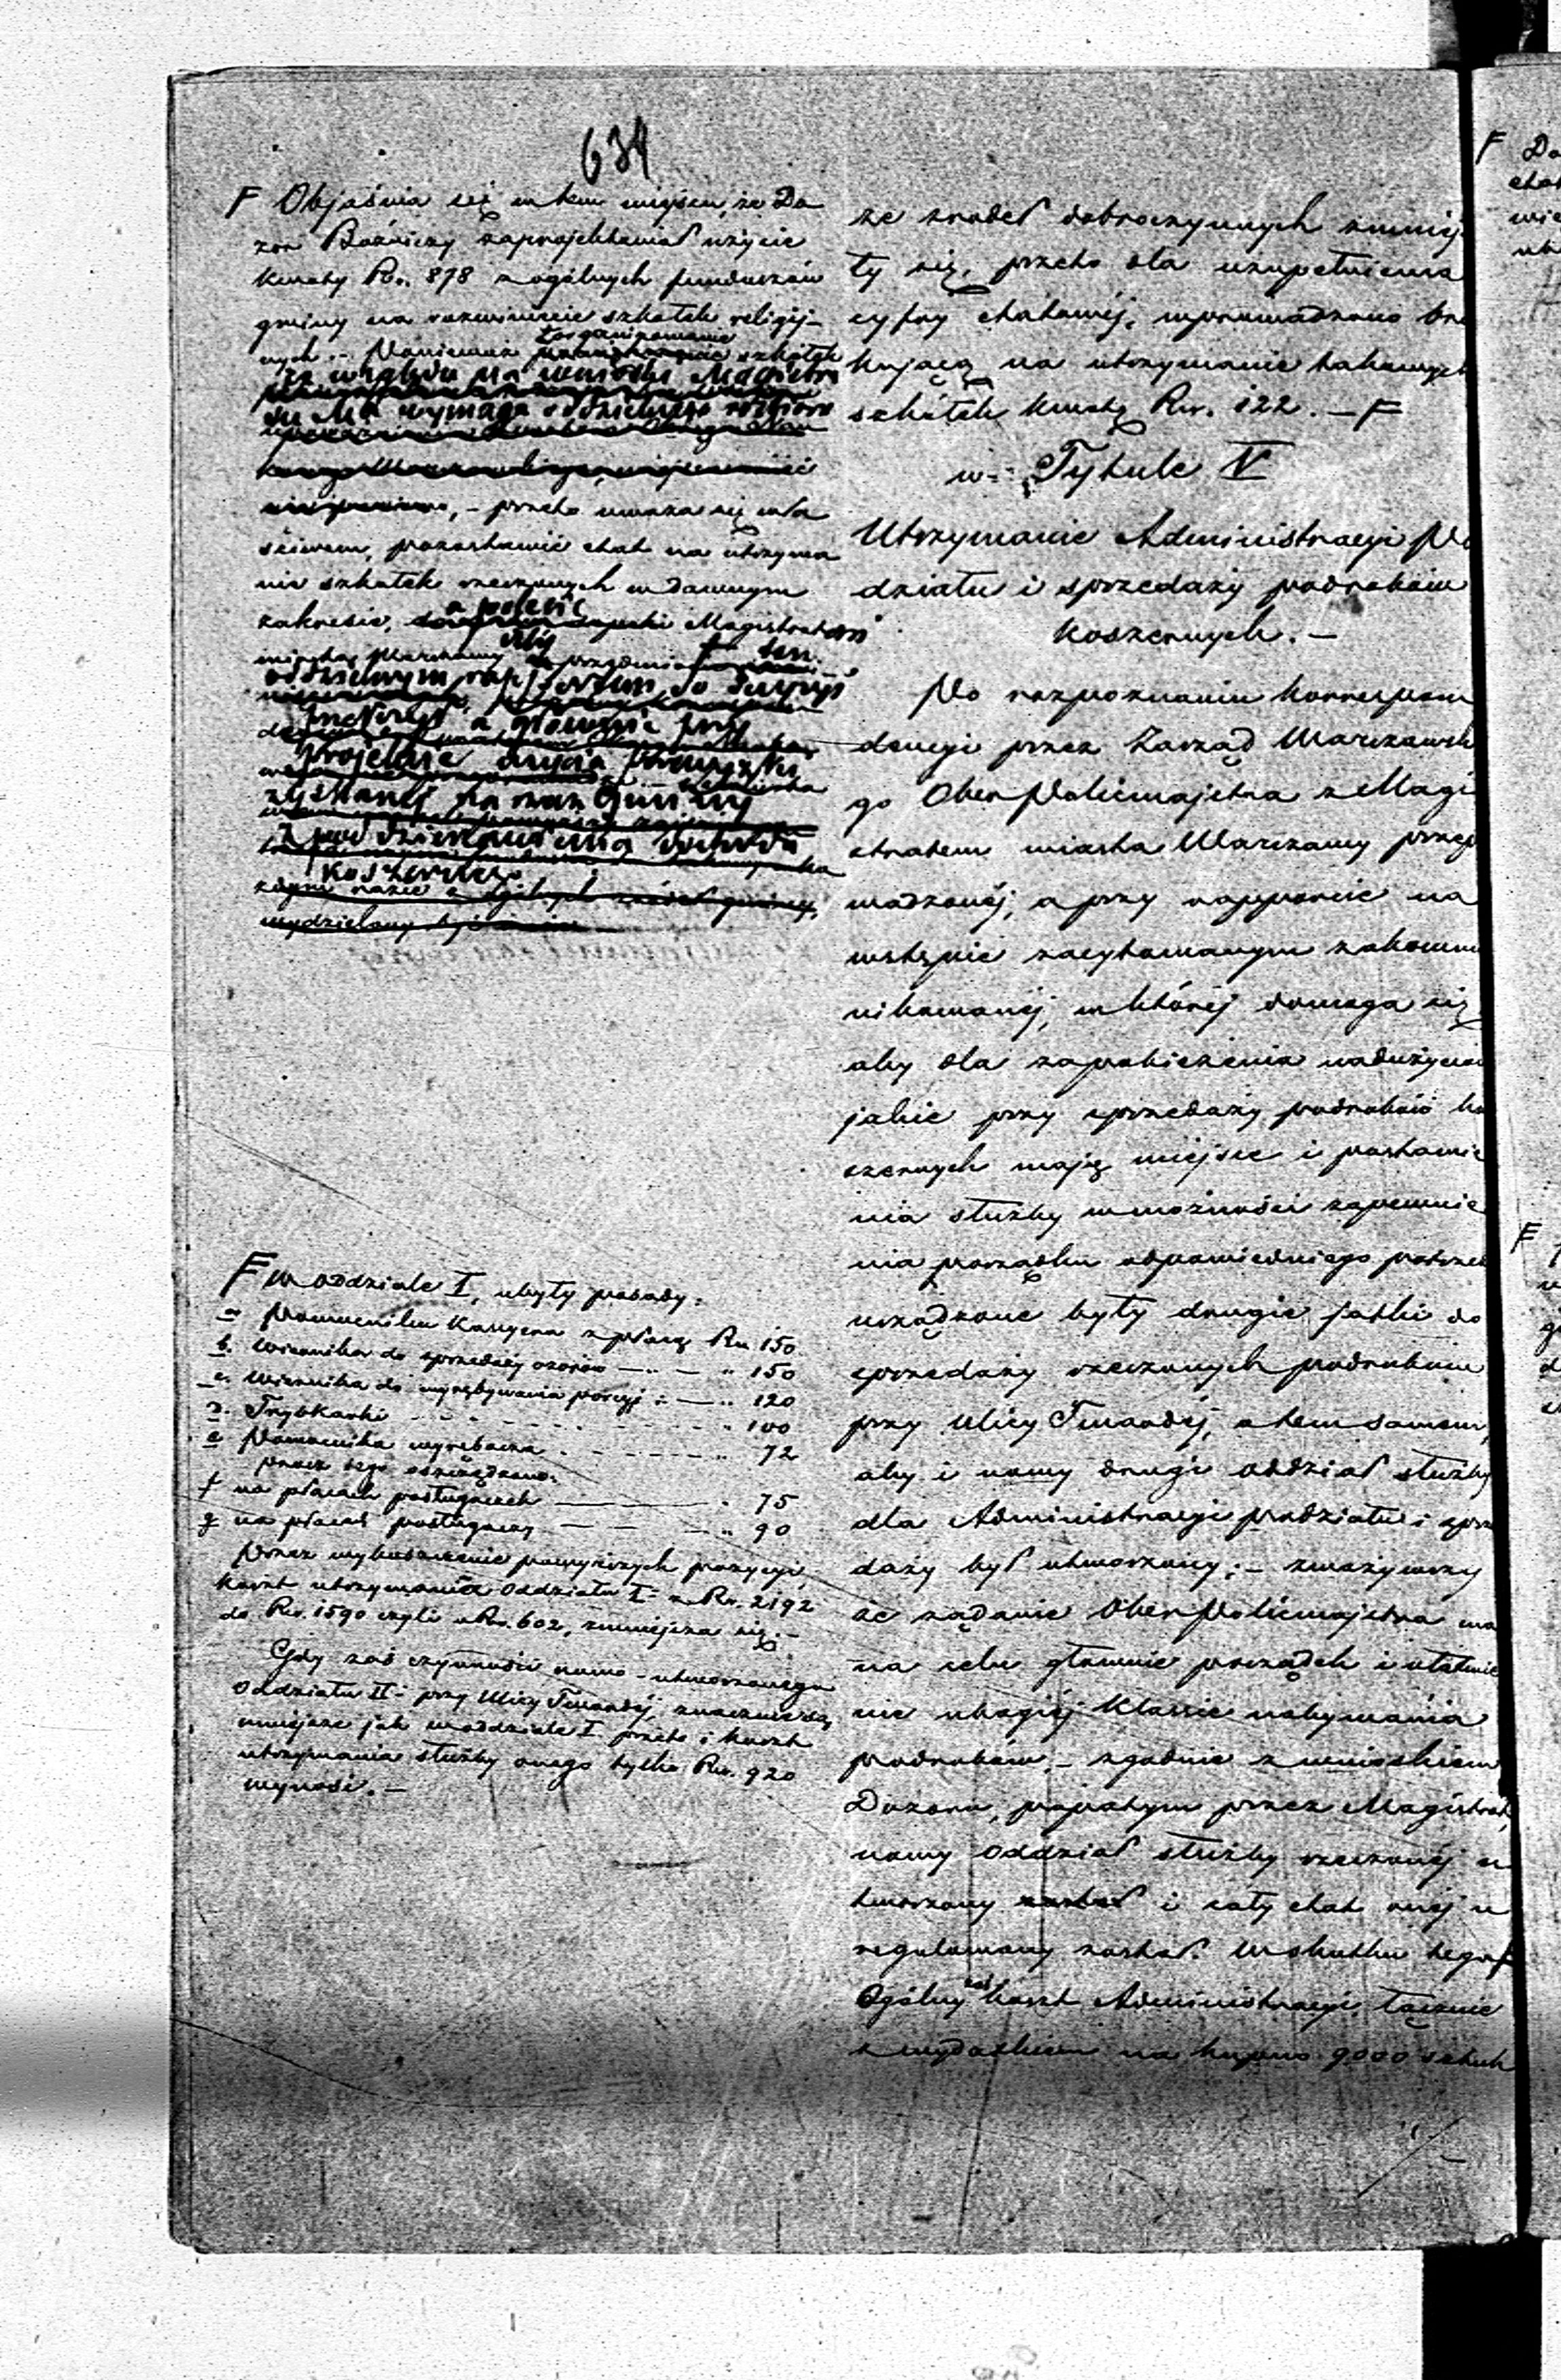 634
F Objaśnia się w tem miejscu, że Do
zór Bóżniczy zaprojektował użycie
kwoty Rs. 878 z ogólnych funduszów
gminy na rozwinięcie szkółek religij-
nych. - Ponieważ zorganizowanie szkółek
ze względu na wnioski Magistra
tu Ma wymaga oddzielnego rozbioru
- przeto uważa się wła
ściwem, pozostawić etat na utrzyma
nie szkółek rzeczonych w dawnym
zakresie, a polecić Magistratowi
miasta Warszawy aby przedmiot ten
oddzielnym rapportem do decyzji
przedstawił a głównie przy
projekcie użycia przewyżki
zyskanej na rzecz Gminy
z pod dzierżawienia dochodu
koszernego
F w oddziale I, ubyły posady:
a Pomocnika Kassyera z płacą Rs. 150
b. Wiernika do sprzedaży ozorów — " — " 150
c. Wiernika do wyrębywania porcyj : — " 120
d. Trybkarki - - - - - - " 100
e Pomocnika wyrębacza . - - - - - " 72
prócz tego oszczędzono:
f na płacach posługaczek — " 75
g na płacach posługaczy — — — " 90
Przez wykreślenie powyższych pozycyi,
koszt utrzymania Oddziału I z Rs. 2192
do Rs. 1590 czyli o Rs. 602, zmniejsza się. -
Gdy zaś czynności nowo-utworzonego
Oddziału II przy Ulicy Twardej, znacznie są
mniejsze jak w oddziale I przeto i koszt
utrzymania służby onego tylko Rs. 920
wynosi. —
ze źródeł dobroczynnych zmniej
ły się, przeto dla uzupełnienia
cyfry etatowej, wprowadzono bra
kującą na utrzymanie takowych
szkółek kwotę Rs. 122. — F
w Tytule V
Utrzymanie Administracyi Po
działu i sprzedaży podrobów
Koszernych. —
Po rozpoznaniu korrespon
dencyi przez Zarząd Warszawsk
go OberPolicmajstra z Magi
stratem miasta Warszawy prze
wadzonej, a przy rapporcie na
wstępie zacytowanym zakomu
nikowanej, w której domaga się
aby dla zapobieżenia nadużyciom
jakie przy sprzedaży podrobów ko
szernych mają miejsce i postawie
nia służby w możności zapewnie
nia porządku odpowiedniego potrzeb
urządzone były drugie jatki do
sprzedaży rzeczonych podrobów
przy Ulicy Twardej, a tem samem,
aby i nowy drugi oddział służby
dla Administracyi podziału i sprze
daży był utworzony; - zważywszy
że żądanie OberPolicmajstra ma
na celu głównie porządek i ułatwie
nie ubogiej klassie nabywania
podrobów, - zgodnie z wnioskiem
Dozoru, popartym przez Magistrat,
nowy oddział służby rzeczonej u
tworzony został i cały etat onej u
regulowany został. W skutku tego F
Ogólny zaś koszt Administracyi łącznie
z wydatkiem na kupno 9000 sztuk